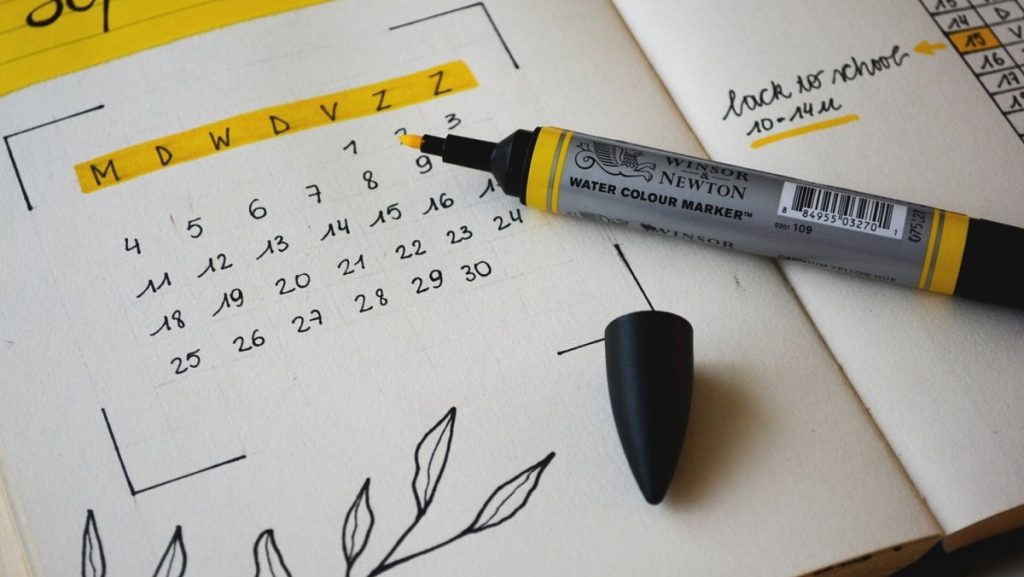 M D W D V Z Z
1 2 3
4 5 6 7 8 9
11 12 13 14 15 16
18 19 20 21 22 23 24
25 26 27 28 29 30
back to school
10-14u
14 D
15 V
16
17
WINSOR
&
NEWTON
WATER COLOUR MARKER™
WINSOR
8 84955 03270 1
0201 109
CADMIUM YELLOW HUE